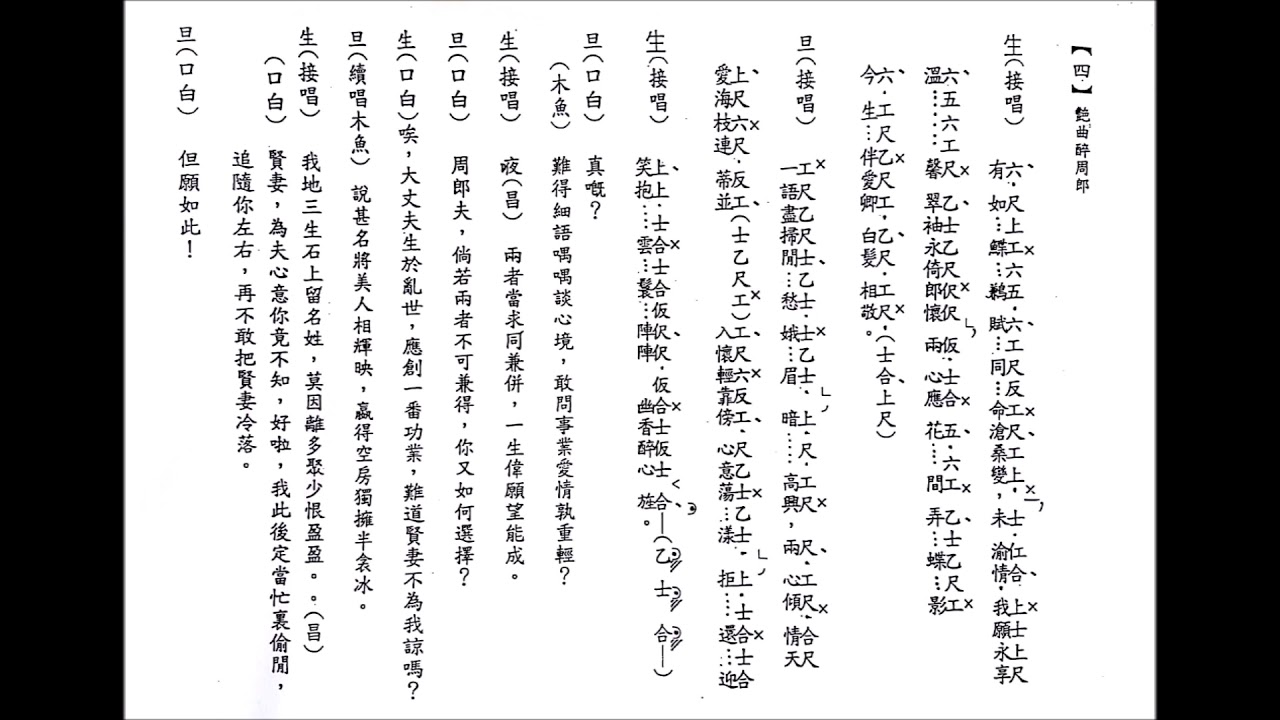 【四】 艷曲醉周郎
生（接唱） 六，尺上工六五，六工尺反工尺工上，士，仁合、上士上尺
有 如…鰈…鶼 賦…同…命滄桑變，未 渝情，我願永享
六五六工尺 乙士乙尺伬伬 伬，士合 五，六工 乙士乙尺工
溫…………馨 翠袖永倚郎懷 兩心應 花……間 弄…蝶…影
六，工尺乙尺工，乙尺，工尺，（士合、上尺）
今 生…伴愛卿 白髮 相敬。
旦（接唱） 工尺乙尺士乙士，士乙士，上，尺，工尺 尺，工尺，合尺
一語盡掃閒…愁 娥…眉 暗……高興，兩心傾 情天
上尺六尺，反工（士乙尺工）工尺六反工，尺乙士乙士，上，士合士合
愛海枝連 蒂並 入懷輕靠傍 心意蕩…漾 拒……還…迎
生（接唱） 上上，士合士合仮伬伬，仮合士仮士 合—（乙 士 合—）
笑抱……雲…鬟…陣陣 幽香醉心 旌。
旦（口白） 真嘅？
（木魚） 難得細語喁喁談心境，敢問事業愛情孰重輕？
生（接唱） 哎（昌） 兩者當求同兼併，一生偉願望能成。
旦（口白） 周郎夫，倘若兩者不可兼得，你又如何選擇？
生（口白）唉，大丈夫生於亂世，應創一番功業，難道賢妻不為我諒嗎？
旦（續唱木魚） 說甚名將美人相輝映，嬴得空房獨擁半衾冰。
生（接唱） 我地三生石上留名姓，莫因離多聚少恨盈盈。。（昌）
（口白） 賢妻，為夫心意你竟不知，好啦，我此後定當忙裏偷閒，
追隨你左右，再不敢把賢妻冷落。
旦（口白） 但願如此！